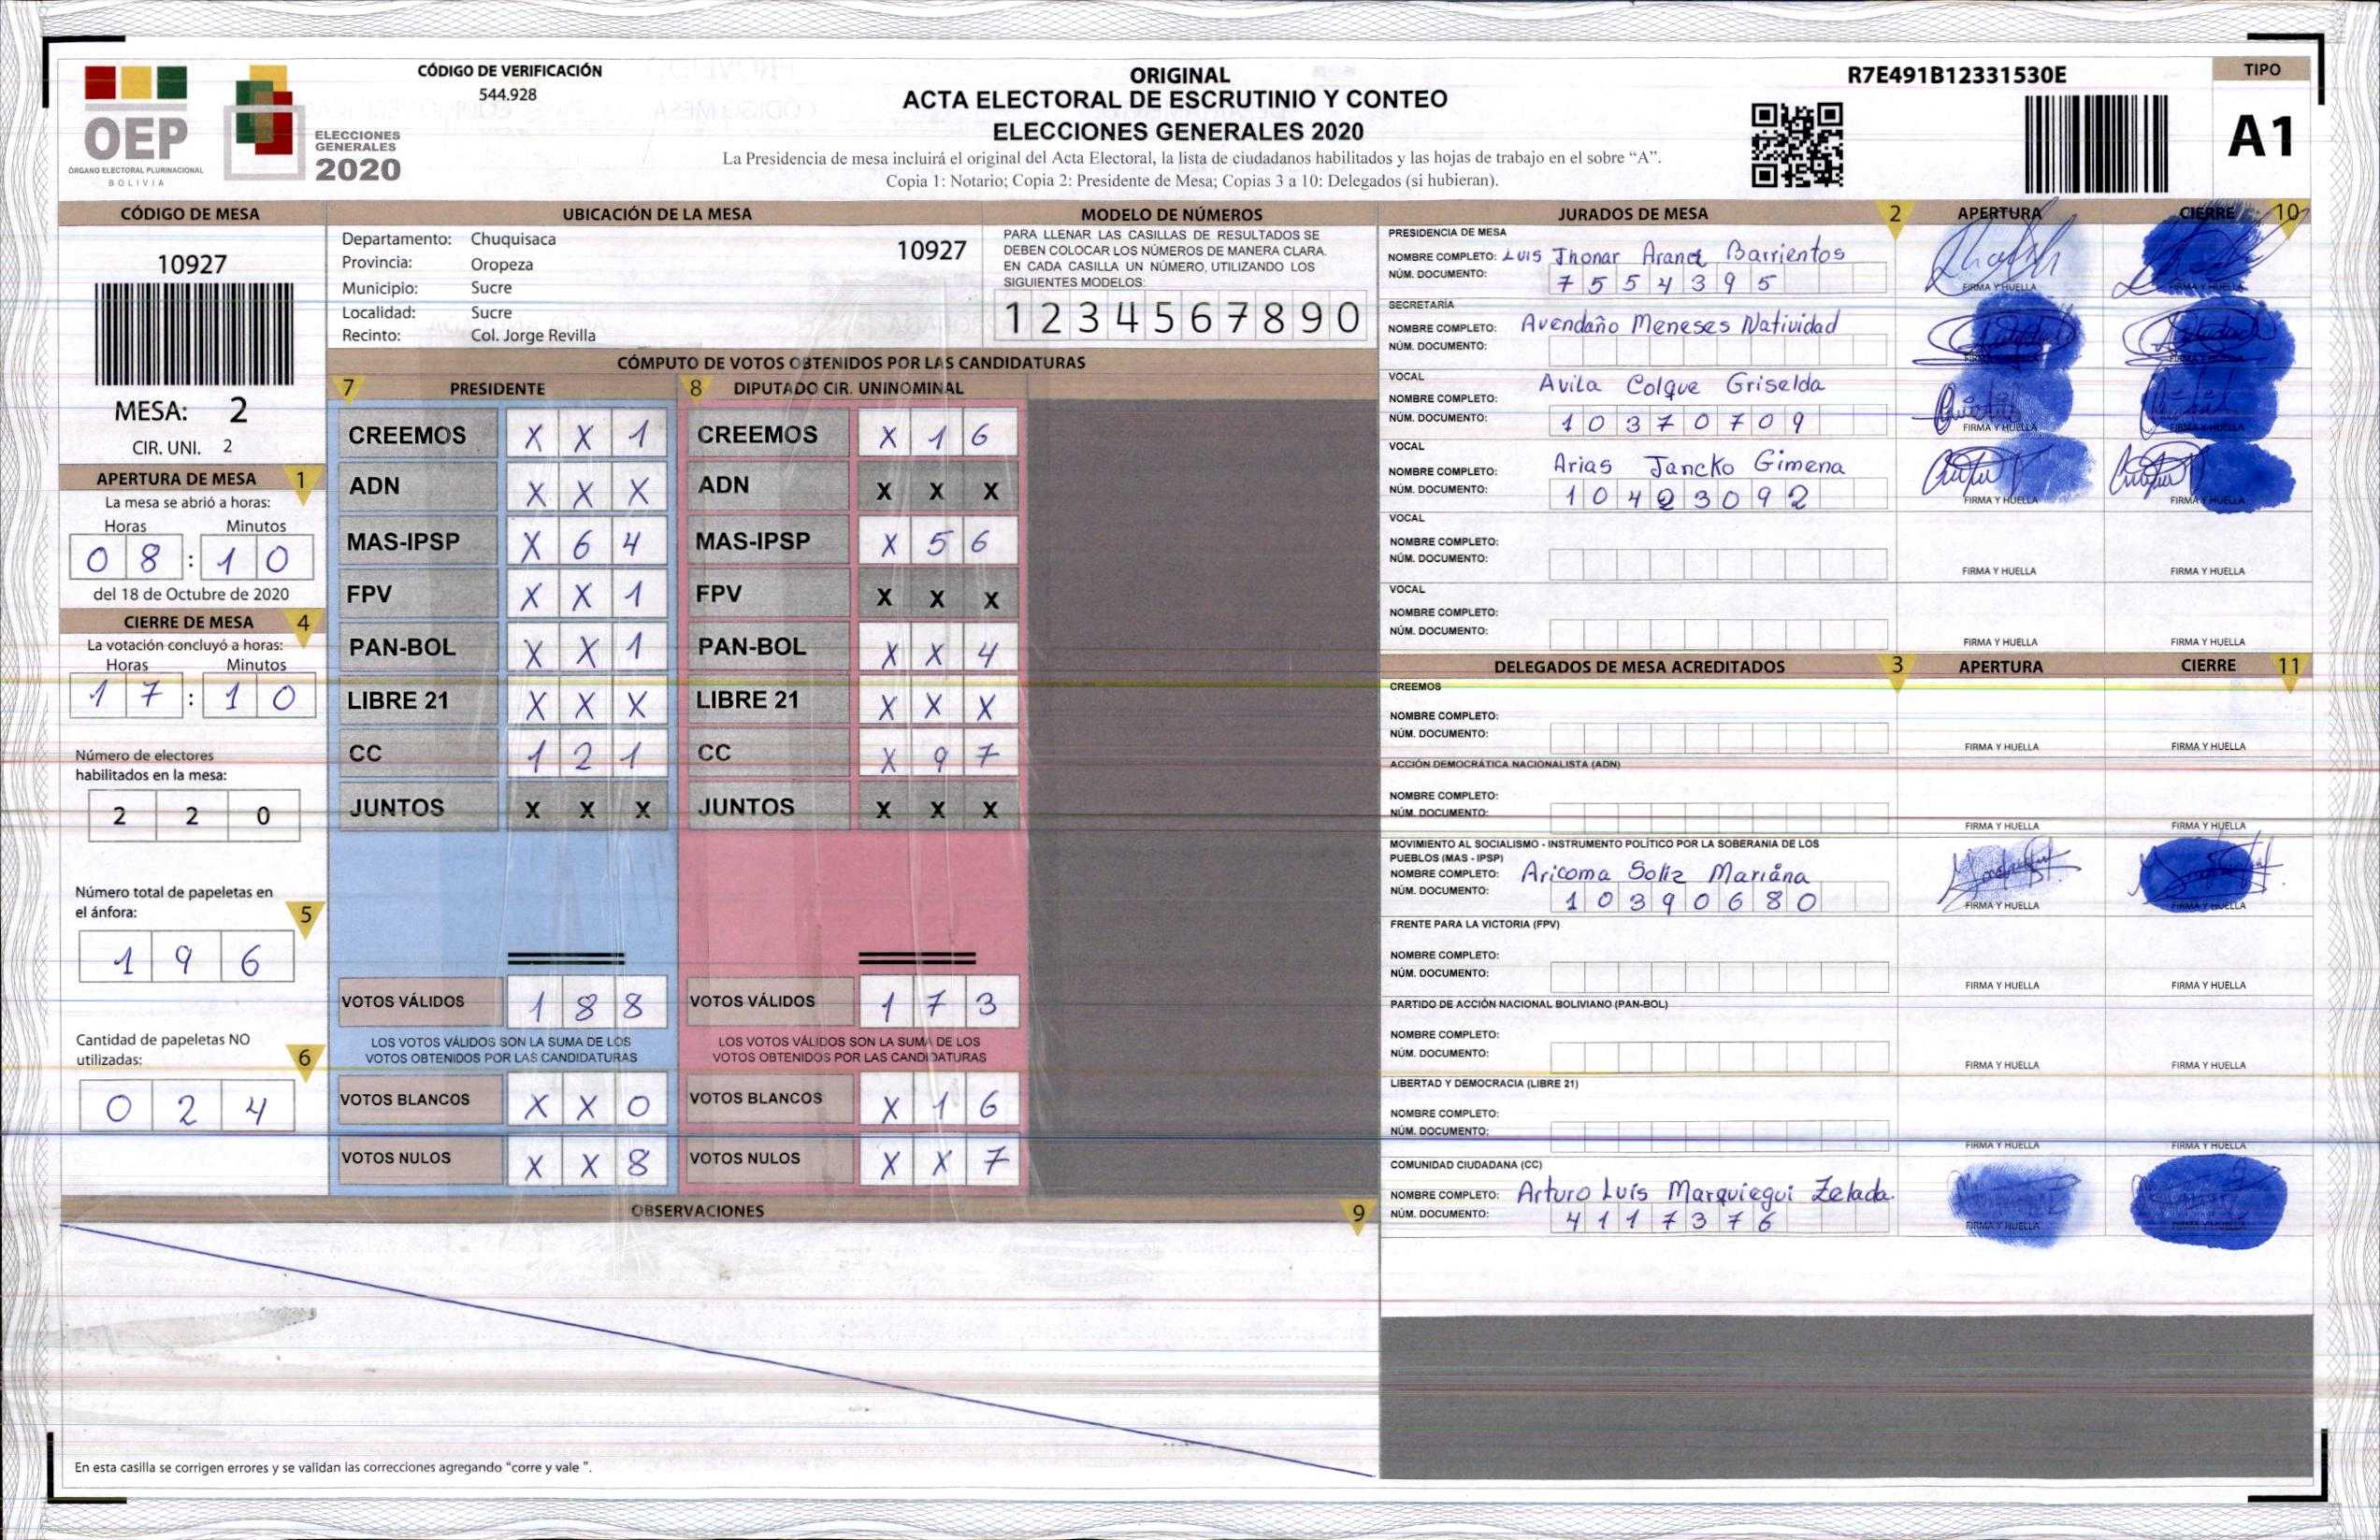 OEP
ÓRGANO ELECTORAL PLURINACIONAL
BOLIVIA
ELECCIONES
GENERALES
2020
CÓDIGO DE VERIFICACIÓN
544.928
ORIGINAL
ACTA ELECTORAL DE ESCRUTINIO Y CONTEO
ELECCIONES GENERALES 2020
La Presidencia de mesa incluirá el original del Acta Electoral, la lista de ciudadanos habilitados y las hojas de trabajo en el sobre “A”.
Copia 1: Notario; Copia 2: Presidente de Mesa; Copias 3 a 10: Delegados (si hubieran).
R7E491B12331530E
TIPO
A1
CÓDIGO DE MESA
10927
MESA: 2
CIR. UNI. 2
APERTURA DE MESA 1
La mesa se abrió a horas:
Horas Minutos
0 8 : 1 0
del 18 de Octubre de 2020
CIERRE DE MESA 4
La votación concluyó a horas:
Horas Minutos
1 7 : 1 0
Número de electores
habilitados en la mesa:
2 2 0
Número total de papeletas en
el ánfora: 5
1 9 6
Cantidad de papeletas NO
utilizadas: 6
0 2 4
UBICACIÓN DE LA MESA
Departamento: Chuquisaca 10927
Provincia: Oropeza
Municipio: Sucre
Localidad: Sucre
Recinto: Col. Jorge Revilla
MODELO DE NÚMEROS
PARA LLENAR LAS CASILLAS DE RESULTADOS SE
DEBEN COLOCAR LOS NÚMEROS DE MANERA CLARA.
EN CADA CASILLA UN NÚMERO, UTILIZANDO LOS
SIGUIENTES MODELOS:
1 2 3 4 5 6 7 8 9 0
CÓMPUTO DE VOTOS OBTENIDOS POR LAS CANDIDATURAS
7 PRESIDENTE 8 DIPUTADO CIR. UNINOMINAL
CREEMOS X X 1 CREEMOS X 1 6
ADN X X X ADN X X X
MAS-IPSP X 6 4 MAS-IPSP X 5 6
FPV X X 1 FPV X X X
PAN-BOL X X 1 PAN-BOL X X 4
LIBRE 21 X X X LIBRE 21 X X X
CC 1 2 1 CC X 9 7
JUNTOS X X X JUNTOS X X X
VOTOS VÁLIDOS 1 8 8 VOTOS VÁLIDOS 1 7 3
LOS VOTOS VÁLIDOS SON LA SUMA DE LOS LOS VOTOS VÁLIDOS SON LA SUMA DE LOS
VOTOS OBTENIDOS POR LAS CANDIDATURAS VOTOS OBTENIDOS POR LAS CANDIDATURAS
VOTOS BLANCOS X X 0 VOTOS BLANCOS X 1 6
VOTOS NULOS X X 8 VOTOS NULOS X X 7
OBSERVACIONES 9
En esta casilla se corrigen errores y se validan las correcciones agregando “corre y vale ”.
JURADOS DE MESA 2 APERTURA CIERRE 10
PRESIDENCIA DE MESA
NOMBRE COMPLETO: LUIS Jhonar Arancl Barrientos
NÚM. DOCUMENTO: 7 5 5 4 3 9 5
FIRMA Y HUELLA FIRMA Y HUELLA
SECRETARÍA
NOMBRE COMPLETO: Avendaño Meneses Natividad
NÚM. DOCUMENTO:
FIRMA Y HUELLA FIRMA Y HUELLA
VOCAL
NOMBRE COMPLETO: Avila Colque Griselda
NÚM. DOCUMENTO: 1 0 3 7 0 7 0 9
FIRMA Y HUELLA FIRMA Y HUELLA
VOCAL
NOMBRE COMPLETO: Arias Jancko Gimena
NÚM. DOCUMENTO: 1 0 4 2 3 0 9 2
FIRMA Y HUELLA FIRMA Y HUELLA
VOCAL
NOMBRE COMPLETO:
NÚM. DOCUMENTO:
FIRMA Y HUELLA FIRMA Y HUELLA
VOCAL
NOMBRE COMPLETO:
NÚM. DOCUMENTO:
FIRMA Y HUELLA FIRMA Y HUELLA
DELEGADOS DE MESA ACREDITADOS 3 APERTURA CIERRE 11
CREEMOS
NOMBRE COMPLETO:
NÚM. DOCUMENTO:
FIRMA Y HUELLA FIRMA Y HUELLA
ACCIÓN DEMOCRÁTICA NACIONALISTA (ADN)
NOMBRE COMPLETO:
NÚM. DOCUMENTO:
FIRMA Y HUELLA FIRMA Y HUELLA
MOVIMIENTO AL SOCIALISMO - INSTRUMENTO POLÍTICO POR LA SOBERANIA DE LOS
PUEBLOS (MAS - IPSP)
NOMBRE COMPLETO: Aricoma Soliz Mariana
NÚM. DOCUMENTO: 1 0 3 9 0 6 8 0
FIRMA Y HUELLA FIRMA Y HUELLA
FRENTE PARA LA VICTORIA (FPV)
NOMBRE COMPLETO:
NÚM. DOCUMENTO:
FIRMA Y HUELLA FIRMA Y HUELLA
PARTIDO DE ACCIÓN NACIONAL BOLIVIANO (PAN-BOL)
NOMBRE COMPLETO:
NÚM. DOCUMENTO:
FIRMA Y HUELLA FIRMA Y HUELLA
LIBERTAD Y DEMOCRACIA (LIBRE 21)
NOMBRE COMPLETO:
NÚM. DOCUMENTO:
FIRMA Y HUELLA FIRMA Y HUELLA
COMUNIDAD CIUDADANA (CC)
NOMBRE COMPLETO: Arturo Luis Marquiegui Zelada.
NÚM. DOCUMENTO: 4 1 1 7 3 7 6
FIRMA Y HUELLA FIRMA Y HUELLA